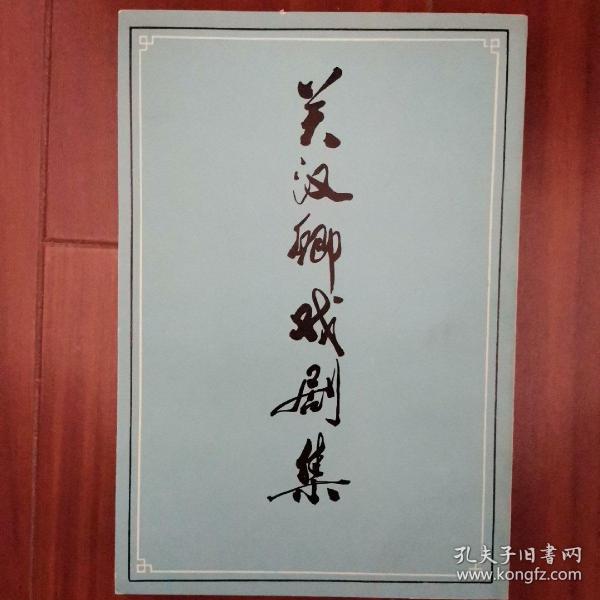 关汉卿戏剧集
孔夫子旧書网
www.kongfz.com